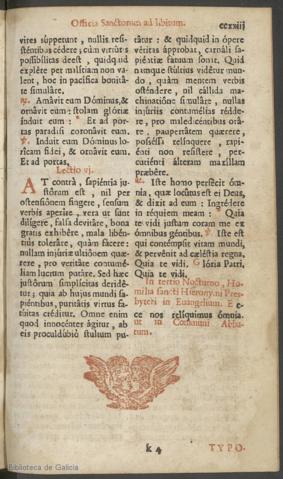 Officia Sanctorum ad libitum. ccxxiij
vires suppetunt, nullis resi-
sténtibus cédere; cùm virtus
possibílitas deest, quidquid
explére per malítiam non va-
lent, hoc in pacífica bonitá-
te simuláre.
℟. Amávit eum Dóminus, &
ornávit eum: stolam glóriæ
índuit eum: * Et ad por-
tas paradísi coronávit eum.
℣. Induit eum Dóminus lo-
rícam fídei, & ornávit eum.
Et ad portas.
Lectio vj.
AT contrà, sapiéntia ju-
stórum est, nil per
ostensiónem fíngere, sensum
verbis aperíre, vera ut sunt
dilígere, falsa devitáre, bona
gratis exhibére, mala libén-
tiùs toleráre, quàm fácere:
nullam injúriæ ultiónem quæ-
rere, pro veritáte contumé-
liam lucrum putáre. Sed hæc
justórum simplícitas deridé-
tur; quia ab hujus mundi sa-
piéntibus, púritátis virtus fa-
túitas créditur. Omne enim
quod innocénter ágitur, ab
eis proculdúbio stultum pu-
tátur: & quidquid in ópere
véritas ápprobat, carnáli sa-
piéntiæ fátuum sonat. Quid
namque stúltius vidétur mun-
do, quàm mentem verbis
osténdere, nil cállida ma-
chinatióne simuláre, nullas
injúriis contumélias rédde-
re, pro maledicéntibus orá-
re, paupertátem quærere,
posséssa relínquere, rapi-
énti non resístere, per-
cutiénti álteram maxíllam
præbére.
℟. Iste homo perfécit óm-
nia, quæ locútus est ei Deus,
& dixit ad eum: Ingrédere
in réquiem meam: * Quia
te vidi justum coram me ex
ómnibus géntibus. ℣. Iste est
qui contémpsit vitam mundi,
& pervénit ad cæléstia regna.
Quia te vidi. Glória Patri.
Quia te vidi.
In tertio Nocturno, Ho-
milia sancti Hieronymi Pres-
byteri in Evangelium. Ec-
ce nos relíquimus ómnia.
ut in Communi Abba-
tum.
k 4 TYPO-
Biblioteca de Galicia